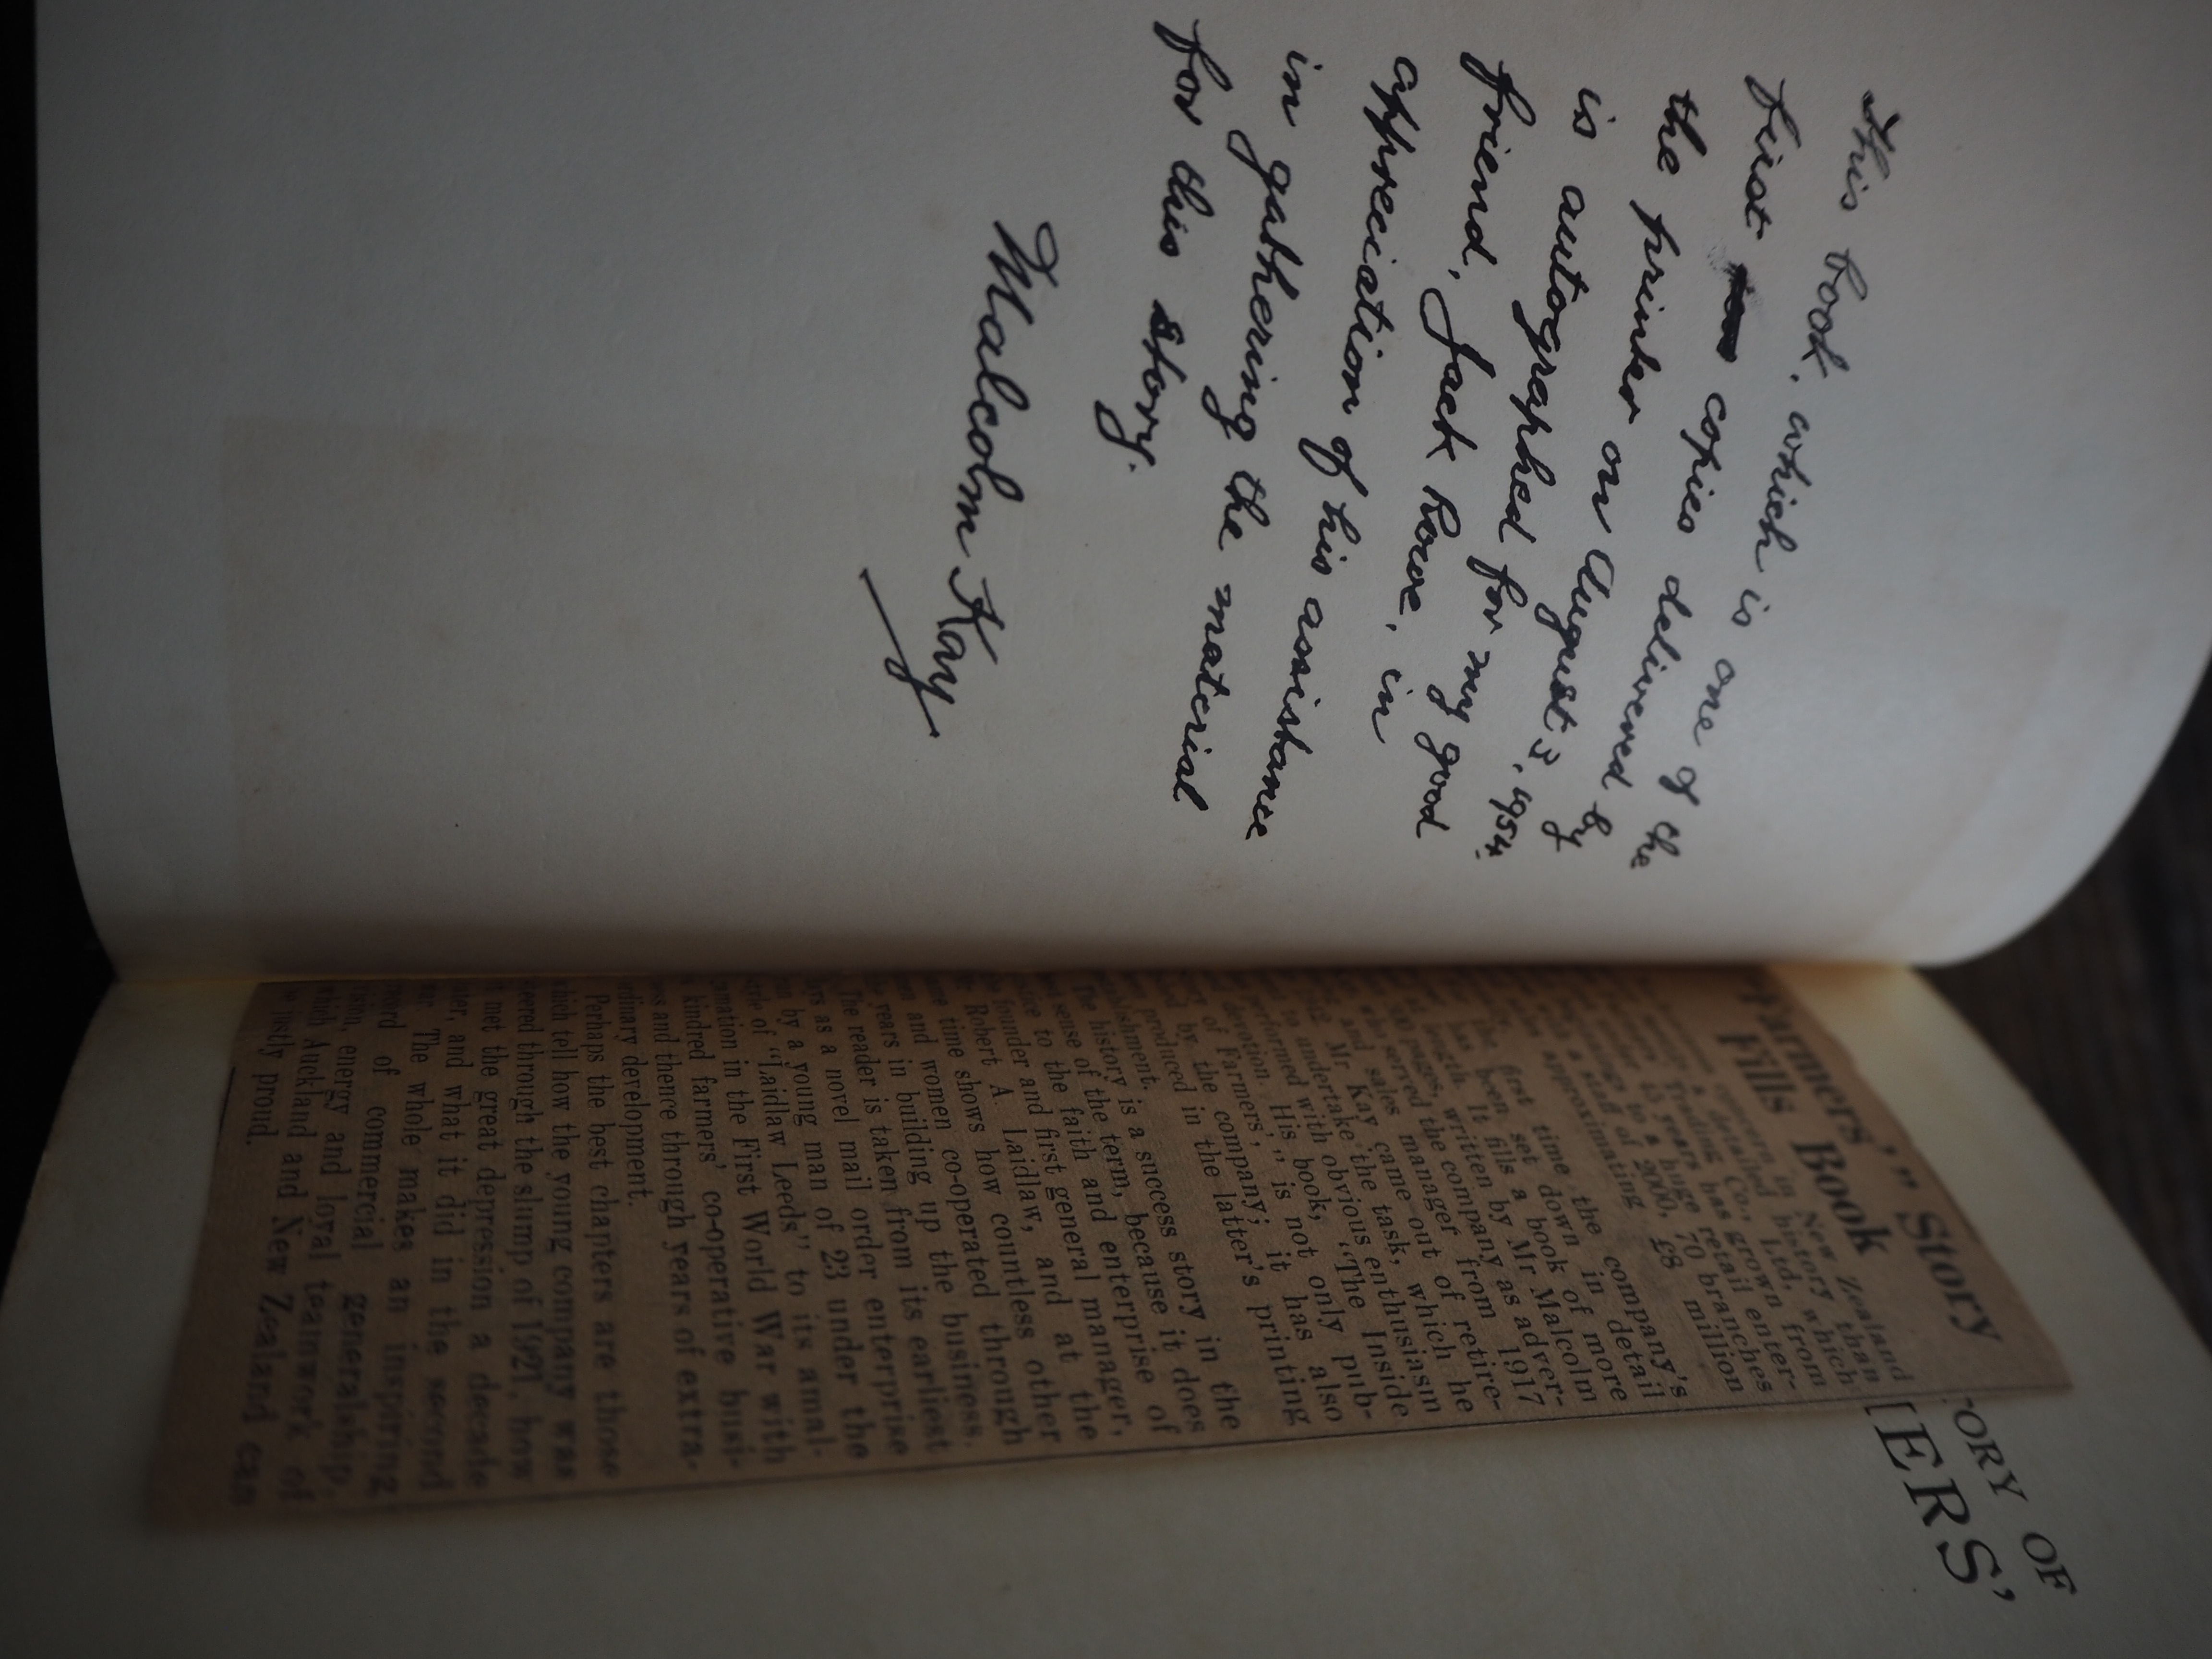 This book, which is one of the
first copies delivered by
the printer on August 3, 1954
is autographed for my good
friend, Jack Rowe, in
appreciation of his assistance
in gathering the material
for this story.
Malcolm Kay
Farmers'," Story
Fills Book
New Zealand
in history than
detailed which
Trading Co., Ltd. from
years has grown
to a huge retail enter-
staff of 2000, 70 branches
approximating £8 million
the company's
first time in detail
been set down of more
has a book
It fills Mr Malcolm
pages, written by as adver-
who served the company 1917
and sales manager from
Mr Kay came out of retire-
to undertake the task, which he
performed with obvious enthusiasm
devotion. His book, "The Inside
of Farmers'," is not only pub-
by the company; it has also
produced in the latter's printing
The history is a success story in the
sense of the term, because it does
to the faith and enterprise of
founder and first general manager,
Robert A. Laidlaw, and at the
time shows how countless other
and women co-operated through
years in building up the business.
The reader is taken from its earliest
as a novel mail order enterprise
by a young man of 23 under the
of "Laidlaw Leeds" to its amal-
mation in the First World War with
kindred farmers' co-operative busi-
and thence through years of extra-
rdinary development.
Perhaps the best chapters are those
which tell how the young company was
eered through the slump of 1921, how
met the great depression a decade
and what it did in the second
The whole makes an inspiring
of commercial generalship,
energy and loyal teamwork of
which Auckland and New Zealand can
justly proud.
ORY OF
ERS'